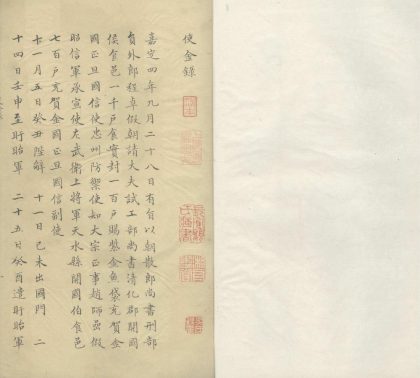 使金錄
嘉定四年九月二十八日有旨以朝散郎尚書刑部
員外郎程卓假朝請大夫試工部尚書清化郡開國
侯食邑一千戶食實封一百戶賜紫金魚袋充賀金
國正旦國信使忠州防禦使知大宗正事趙師嵒假
昭信軍承宣使左武衛上將軍天水縣開國伯食邑
七百戶充賀金國正旦國信副使
十一月五日癸丑陛辭 十一日己未出國門 二
十四日壬申至盱眙軍 二十五日癸酉遣盱眙軍